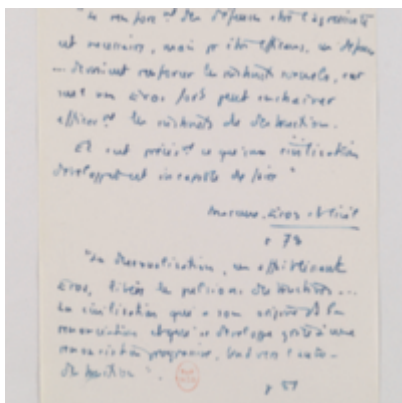 "Le renforc^t des défenses contre l'agressivité
est nécessaire, mais pr être efficaces, ces défenses
... devraient renforcer les instincts sexuels, car
seul un Eros fort peut enchaîner
effic^t les instincts de destruction.
Et c'est précis^t ce que la civilisation
développée est incapable de faire"
Marcuse, Eros et Civil
p 78
"La désexualisation, en affaiblissant
Eros, libère les pulsions destructrices ...
La civilisation qui a son origine ds la
renonciation et qui se développe grâce à une
renonciation progressive, tend vers l'auto-
destruction".